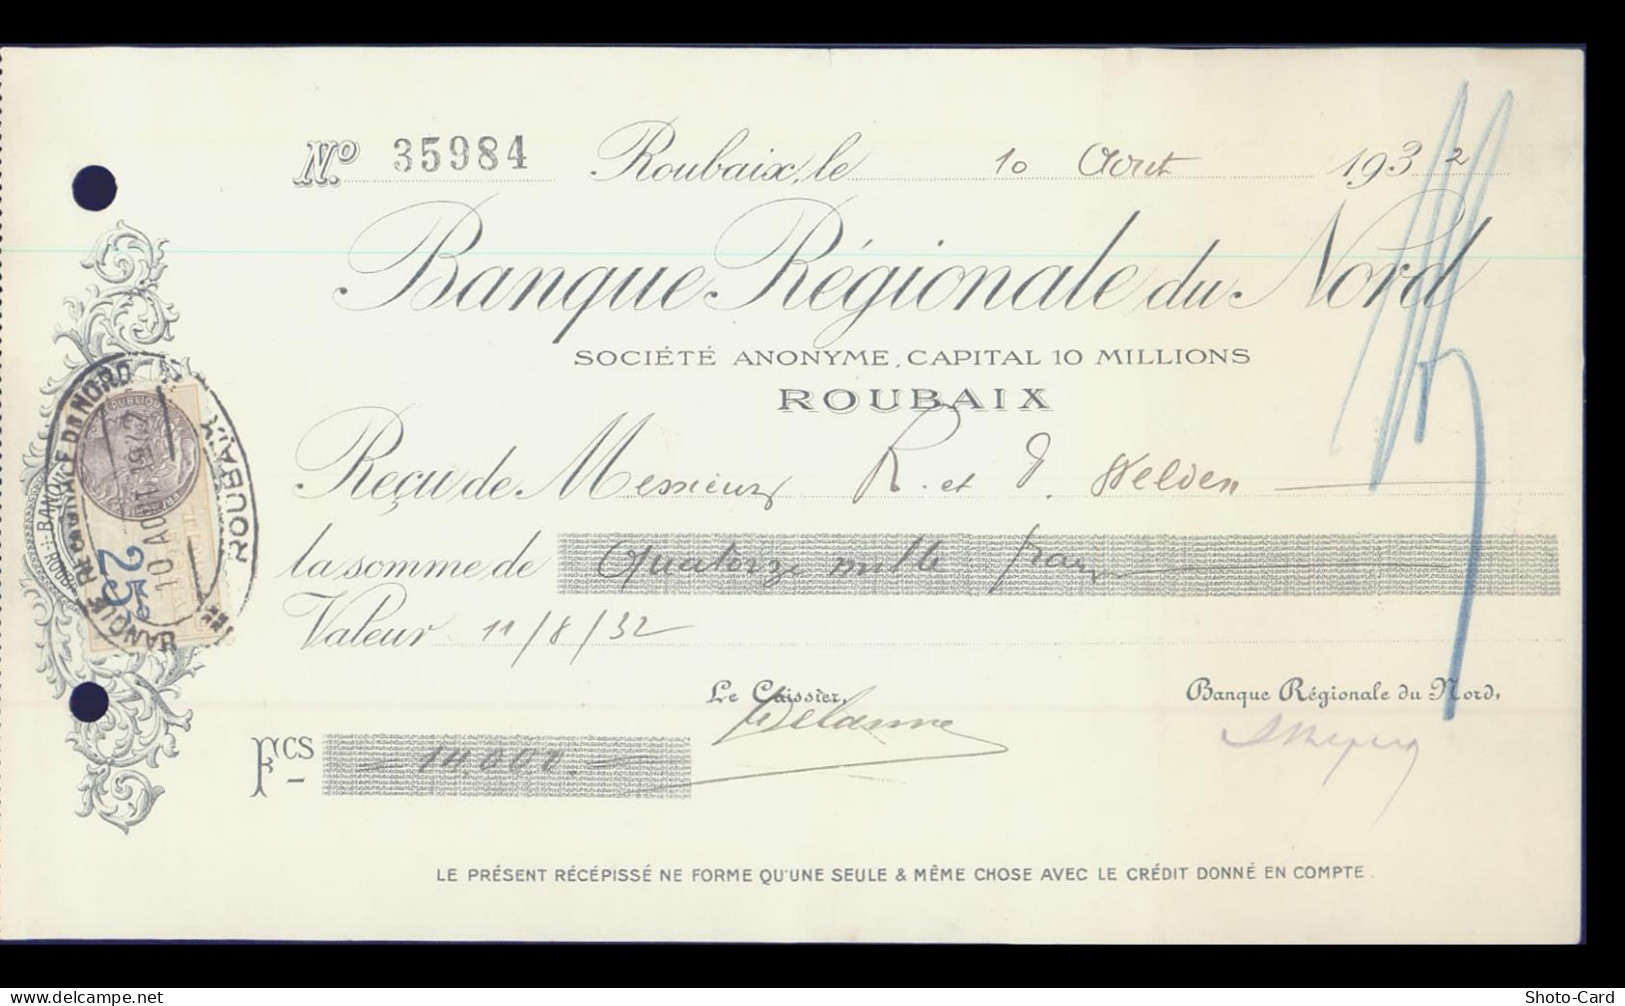 Nº 35984 Roubaix, le 10 Aout 1932
Banque Régionale du Nord
SOCIÉTÉ ANONYME, CAPITAL 10 MILLIONS
ROUBAIX
Reçu de Messieurs R. et J. Welden
la somme de Quatorze mille francs
Valeur 11/8/32
Le Caissier, Banque Régionale du Nord,
Delanne
Fcs 14.000.
LE PRÉSENT RÉCÉPISSÉ NE FORME QU'UNE SEULE & MÊME CHOSE AVEC LE CRÉDIT DONNÉ EN COMPTE.
BANQUE RÉGIONALE DU NORD
ROUBAIX
10 AO
25
delcampe.net
Shoto-Card